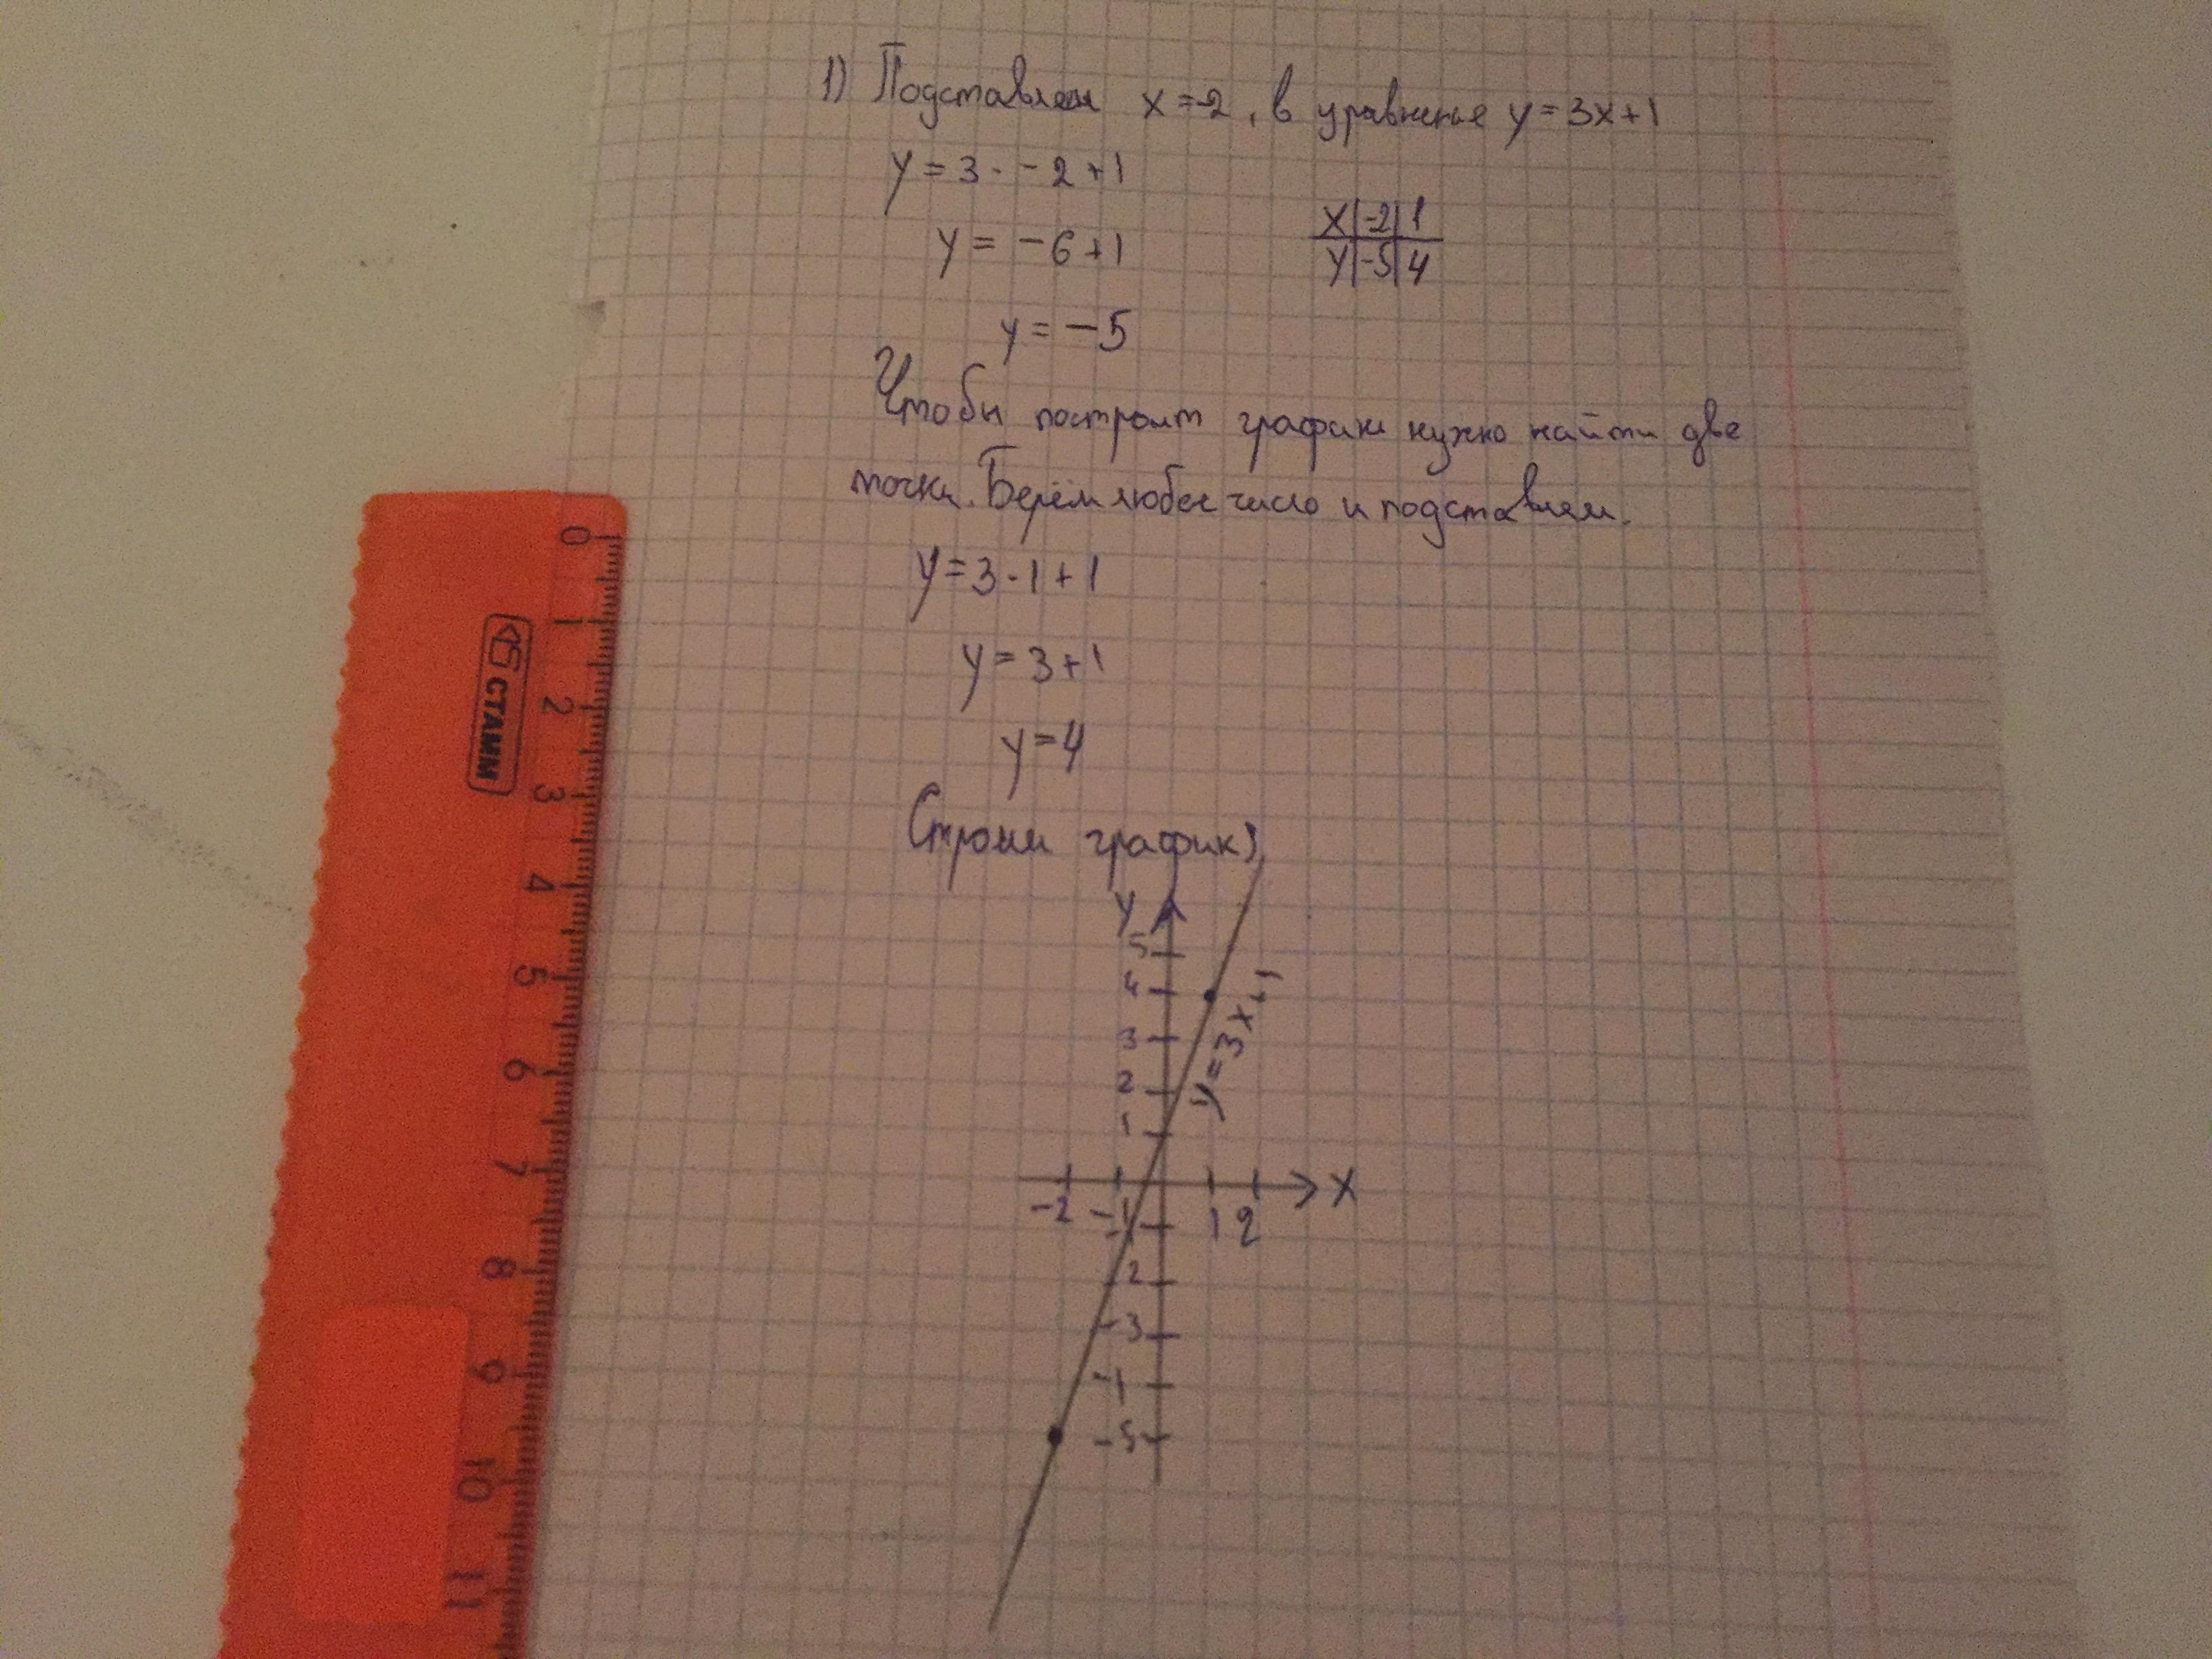 1) Подставляем x=-2, в уравненье y=3x+1
y=3·-2+1
y=-6+1
y=-5
X|-2|1
Y|-5|4
Чтобы построит график нужно найти две
точки. Берём любое число и подставляем.
y=3·1+1
y=3+1
y=4
Строим график)
y
5
4
3
2
1
y=3x+1
-2 -1 1 2 X
-1
2
-3
-1
-5
СТАММ
0
1
2
3
4
5
6
7
8
9
10
11